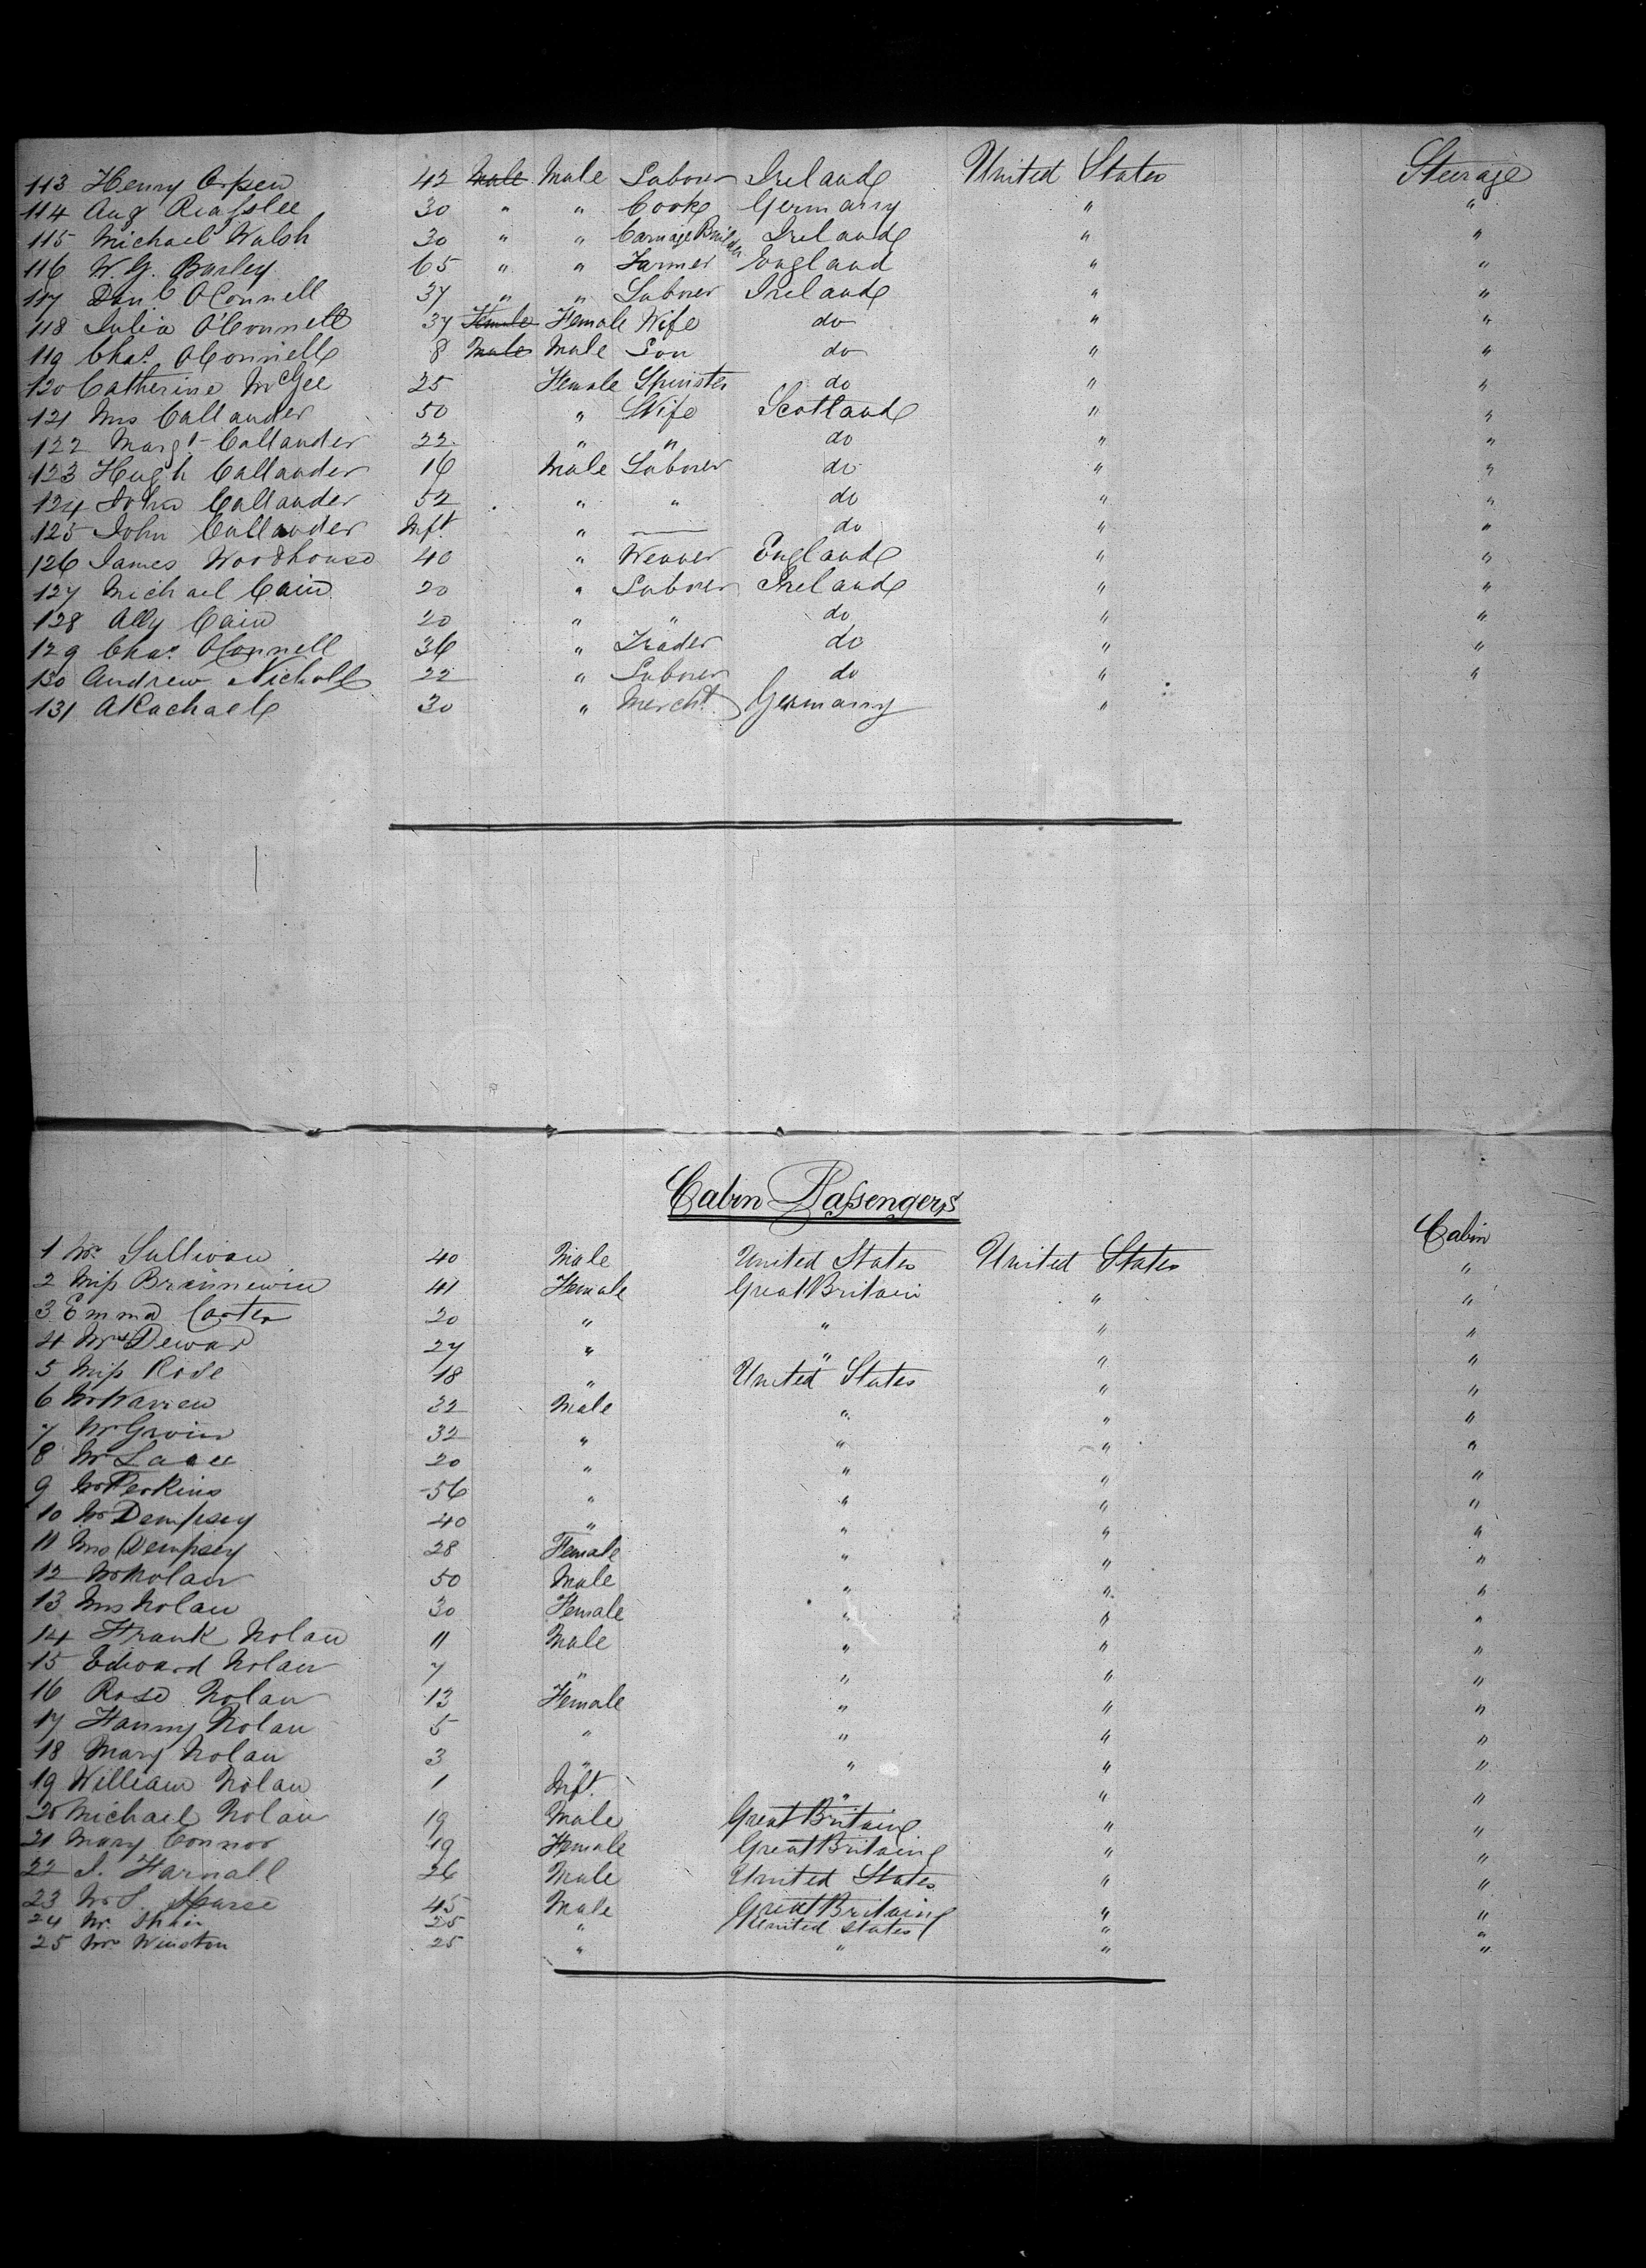 113 Henry Orpen 42 Male Male Laborer Ireland United States Steerage
114 Aug 30 " " Cook Germany " "
115 Michael Walsh 30 " " Carriage Builder Ireland " "
116 W. G. Barley 65 " " Farmer England " "
117 Danl OConnell 37 " " Laborer Ireland " "
118 Julia O'Connell 37 Female Female Wife do " "
119 Chas. OConnell 8 Male Male Son do " "
120 Catherine McGee 25 Female Spinster do " "
121 Mrs Callander 50 " Wife Scotland " "
122 Margt Callander 22 " " do " "
123 Hugh Callander 16 Male Laborer do " "
124 John Callander 52 " " do " "
125 John Callander Inft " — do " "
126 James Woodhouse 40 " Weaver England " "
127 Michael Cain 20 " Laborer Ireland " "
128 Ally Cain 20 " " do " "
129 Chas. OConnell 36 " Trader do " "
130 Andrew Nicholl 22 " Laborer do " "
131 A Rachael 30 " Mercht Germany "
Cabin Passengers
1 Mr. Sullivan 40 Male United States United States Cabin
2 Miss 41 Female Great Britain " "
3 Emma Carter 20 " " " "
4 Mrs Dewar 27 " " " "
5 Miss Rose 18 " United States " "
6 Mr Warren 32 Male " " "
7 Mr 32 " " " "
8 Mr 20 " " " "
9 Mr Perkins 56 " " " "
10 Mr Dempsey 40 " " " "
11 Mrs Dempsey 28 Female " " "
12 Mr Nolan 50 Male " " "
13 Mrs Nolan 30 Female " " "
14 Frank Nolan 11 Male " " "
15 Edward Nolan 7 " " " "
16 Rose Nolan 13 Female " " "
17 Fanny Nolan 5 " " " "
18 Mary Nolan 3 " " " "
19 William Nolan 1 Inft. " " "
20 Michael Nolan 19 Male Great Britain " "
21 Mary Connor 19 Female Great Britain " "
22 J. Farnall 26 Male United States " "
23 Mr 45 Male Great Britain " "
24 Mr. 25 " United States " "
25 Mr Winston 25 " " " "